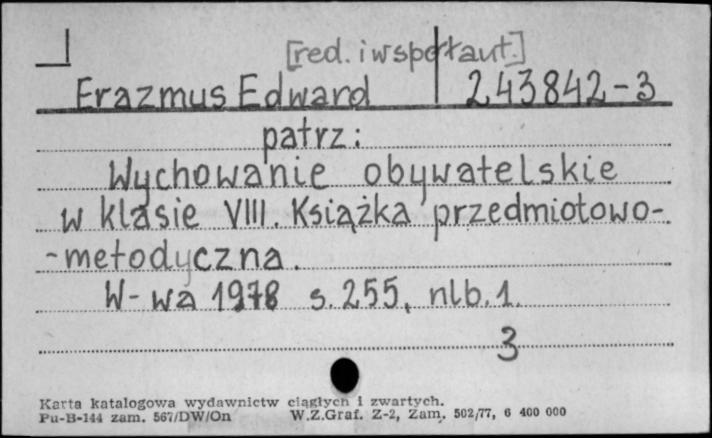 [red. i współaut.]
Erazmus Edward 243842-3
patrz:
Wychowanie obywatelskie
w klasie VIII. Książka przedmiotowo-
-metodyczna.
W-wa 1978 s. 255, nlb. 1.
3
Karta katalogowa wydawnictw ciągłych i zwartych.
Pu-B-144 zam. 567/DW/On W.Z.Graf. Z-2, Zam. 502/77, 6 400 000